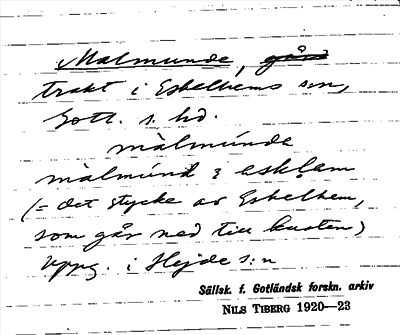 Malmunde, gård
trakt i Eskelhems sn,
Gotl. s. hd.
màlmúnde
màlmúnd i eskləm
(= det stycke av Eskelhem,
som går ned till kusten)
Uppg. i Hejde s:n
Sällsk. f. Gotländsk forskn. arkiv
NILS TIBERG 1920—23